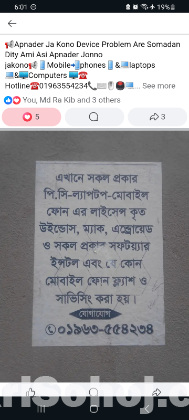 6:01
19%
📢Apnader Ja Kono Device Problem Are Somadan
Dity Ami Asi Apnader Jonno
jakono📢📱Mobile➜📱phones📱&💻laptops
💻&🖥Computers🖥☎
Hotline☎01963554234📞 ... See more
You, Md Ra Kib and 3 others
5
3
এখানে সকল প্রকার
পি.সি-ল্যাপটপ-মোবাইল
ফোন এর লাইসেন্স কৃত
উইন্ডোস, ম্যাক, এন্ড্রোয়েড
ও সকল প্রকার সফটয়্যার
ইন্সটল এবং যে কোন
মোবাইল ফোন ফ্ল্যাশ ও
সার্ভিসিং করা হয়।
যোগাযোগ
✆০১৯৬৩-৫৫৪২৩৪